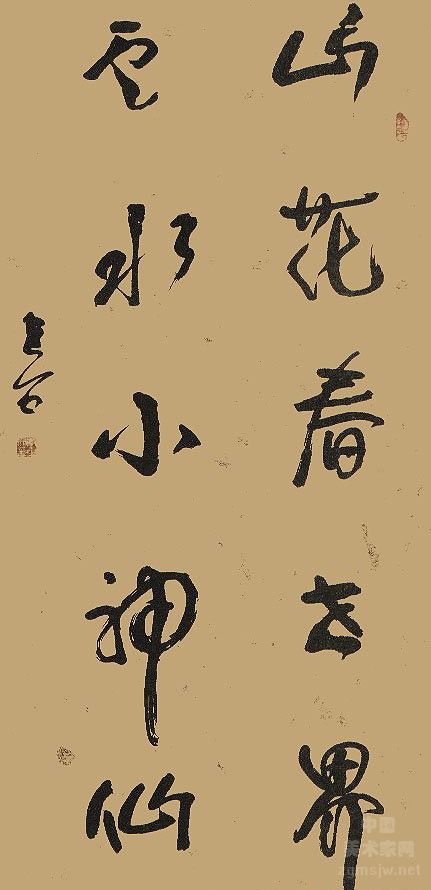 山花春世界
云水小神仙
中国
美术家网
zgmsjw.net